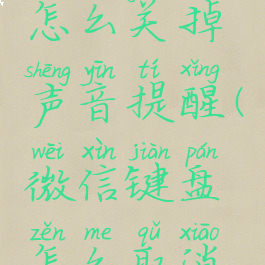 怎么关掉
shēng yīn tí xǐng
声音提醒(
wēi xìn jiàn pán
微信键盘
zěn me qǔ xiāo
怎么取消